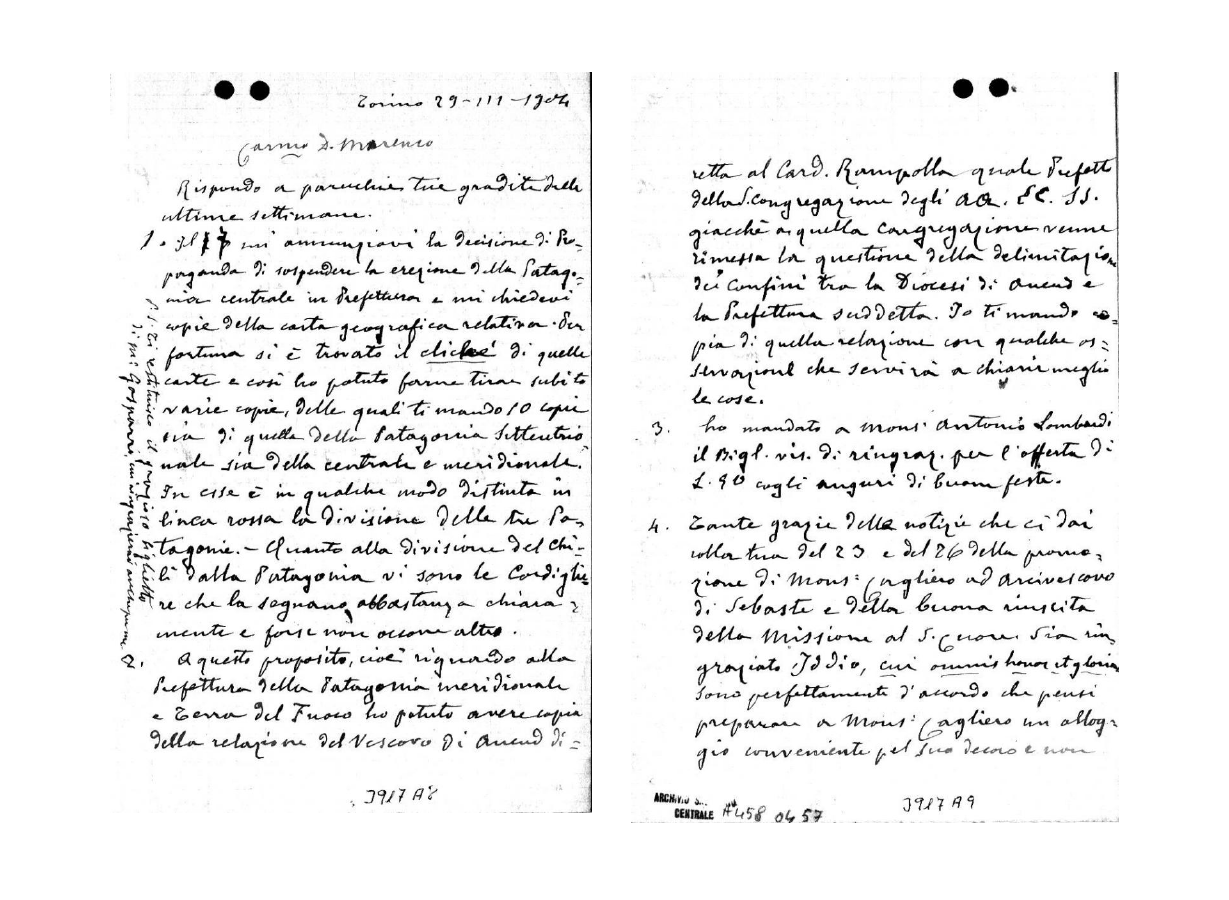 Torino 29-III-1904
Carmo D. Marenco
Rispondo a parecchie tue gradite delle
ultime settimane.
1. Il 17 mi annunziavi la decisione di Pro=
paganda di sospendere la erezione della Patago=
nia centrale in Prefettura e mi chiedevi
copie della carta geografica relativa. Per
fortuna si è trovato il cliché di quelle
carte e così ho potuto farne tirare subito
varie copie, delle quali ti mando 10 copie
sia di quelle della Patagonia Settentrio
nale sia della centrale e meridionale.
In esse è in qualche modo distinta in
linea rossa la divisione delle tre Pa=
tagonie. - Quanto alla divisione del Chi=
lì dalla Patagonia vi sono le Cordiglie
re che la segnano abbastanza chiara=
mente e forse non occorre altro.
A questo proposito, cioè riguardo alla
Prefettura della Patagonia meridionale
e Terra del Fuoco ho potuto avere copia
della relazione del Vescovo di Ancud di=
P.S. Ti restituisco il grazioso biglietto
di Mr. Gasparri,
3917 A8
retta al Card. Rampolla quale Prefetto
della S. Congregazione degli AA. EE. SS.
giacchè a quella Congregazione venne
rimessa la questione della delimitazione
dei confini tra la Diocesi di Ancud e
la Prefettura suddetta. Io ti mando co=
pia di quella relazione con qualche os=
servazione che servirà a chiarir meglio
le cose.
3. ho mandato a Mons: Antonio Lombardi
il Bigl. vis. di ringraz. per l'offerta di
L. 90 cogli auguri di buone feste.
4. Tante grazie delle notizie che ci dai
colla tua del 23 e del 26 della promo=
zione di Mons: Cagliero ad Arcivescovo
di Sebaste e della buona riuscita
della Missione al S. Cuore. Sia rin
graziato Iddio, cui omnis honor et gloria
sono perfettamente d'accordo che pensi
preparare a Mons: Cagliero un allog=
gio conveniente pel suo decoro e non
ARCHIVIO S...
CENTRALE A458 0457
3917 A9